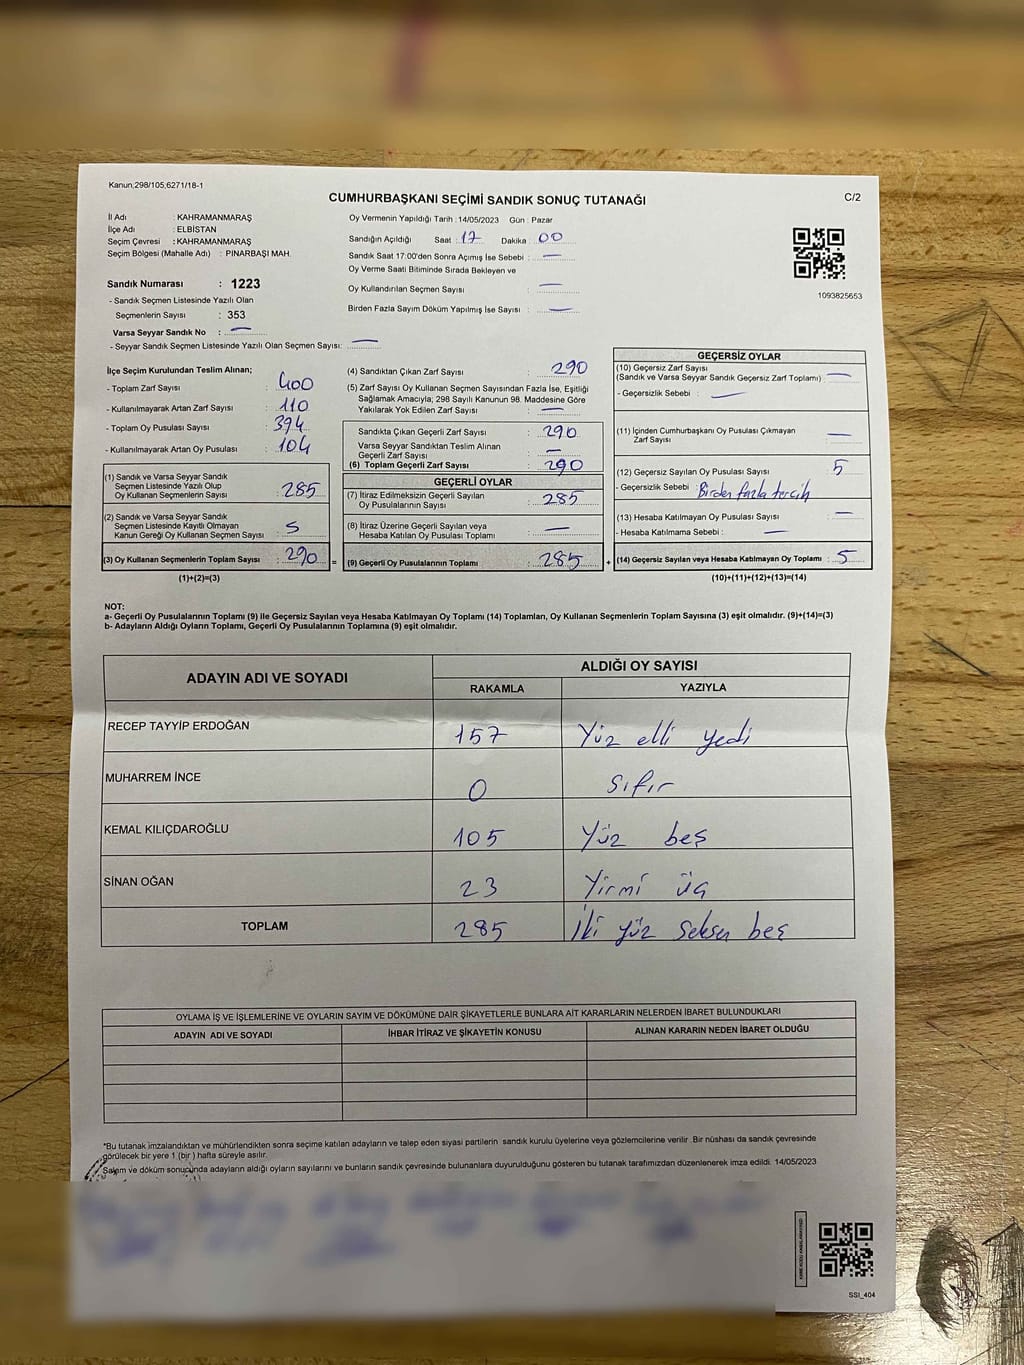 Kanun;298/105;6271/18-1
CUMHURBAŞKANI SEÇİMİ SANDIK SONUÇ TUTANAĞI
C/2
İl Adı : KAHRAMANMARAŞ
İlçe Adı : ELBİSTAN
Seçim Çevresi : KAHRAMANMARAŞ
Seçim Bölgesi (Mahalle Adı) : PINARBAŞI MAH.
Sandık Numarası : 1223
- Sandık Seçmen Listesinde Yazılı Olan
Seçmenlerin Sayısı : 353
Varsa Seyyar Sandık No : —
- Seyyar Sandık Seçmen Listesinde Yazılı Olan Seçmen Sayısı: —
Oy Vermenin Yapıldığı Tarih : 14/05/2023 Gün : Pazar
Sandığın Açıldığı Saat : 17 Dakika : 00
Sandık Saat 17:00'den Sonra Açımış İse Sebebi : —
Oy Verme Saati Bitiminde Sırada Bekleyen ve
Oy Kullandırılan Seçmen Sayısı : —
Birden Fazla Sayım Döküm Yapılmış İse Sayısı : —
1093825653
İlçe Seçim Kurulundan Teslim Alınan;
- Toplam Zarf Sayısı : 400
- Kullanılmayarak Artan Zarf Sayısı : 110
- Toplam Oy Pusulası Sayısı : 394
- Kullanılmayarak Artan Oy Pusulası : 104
(1) Sandık ve Varsa Seyyar Sandık
Seçmen Listesinde Yazılı Olup
Oy Kullanan Seçmenlerin Sayısı : 285
(2) Sandık ve Varsa Seyyar Sandık
Seçmen Listesinde Kayıtlı Olmayan
Kanun Gereği Oy Kullanan Seçmen Sayısı : 5
(3) Oy Kullanan Seçmenlerin Toplam Sayısı : 290
(1)+(2)=(3)
(4) Sandıktan Çıkan Zarf Sayısı : 290
(5) Zarf Sayısı Oy Kullanan Seçmen Sayısından Fazla İse, Eşitliği
Sağlamak Amacıyla; 298 Sayılı Kanunun 98. Maddesine Göre
Yakılarak Yok Edilen Zarf Sayısı : —
Sandıkta Çıkan Geçerli Zarf Sayısı : 290
Varsa Seyyar Sandıktan Teslim Alınan
Geçerli Zarf Sayısı : —
(6) Toplam Geçerli Zarf Sayısı : 290
GEÇERLİ OYLAR
(7) İtiraz Edilmeksizin Geçerli Sayılan
Oy Pusulalarının Sayısı : 285
(8) İtiraz Üzerine Geçerli Sayılan veya
Hesaba Katılan Oy Pusulası Toplamı : —
= (9) Geçerli Oy Pusulalarının Toplamı : 285
GEÇERSİZ OYLAR
(10) Geçersiz Zarf Sayısı
(Sandık ve Varsa Seyyar Sandık Geçersiz Zarf Toplamı) : —
- Geçersizlik Sebebi : —
(11) İçinden Cumhurbaşkanı Oy Pusulası Çıkmayan
Zarf Sayısı : —
(12) Geçersiz Sayılan Oy Pusulası Sayısı : 5
- Geçersizlik Sebebi : Birden fazla tercih
(13) Hesaba Katılmayan Oy Pusulası Sayısı : —
- Hesaba Katılmama Sebebi : —
+ (14) Geçersiz Sayılan veya Hesaba Katılmayan Oy Toplamı : 5
(10)+(11)+(12)+(13)=(14)
NOT:
a- Geçerli Oy Pusulalarının Toplamı (9) ile Geçersiz Sayılan veya Hesaba Katılmayan Oy Toplamı (14) Toplamları, Oy Kullanan Seçmenlerin Toplam Sayısına (3) eşit olmalıdır. (9)+(14)=(3)
b- Adayların Aldığı Oyların Toplamı, Geçerli Oy Pusulalarının Toplamına (9) eşit olmalıdır.
ADAYIN ADI VE SOYADI
ALDIĞI OY SAYISI
RAKAMLA YAZIYLA
RECEP TAYYİP ERDOĞAN 157 Yüz elli yedi
MUHARREM İNCE 0 Sıfır
KEMAL KILIÇDAROĞLU 105 Yüz beş
SİNAN OĞAN 23 Yirmi üç
TOPLAM 285 İki yüz seksen beş
OYLAMA İŞ VE İŞLEMLERİNE VE OYLARIN SAYIM VE DÖKÜMÜNE DAİR ŞİKAYETLERLE BUNLARA AİT KARARLARIN NELERDEN İBARET BULUNDUKLARI
ADAYIN ADI VE SOYADI İHBAR İTİRAZ VE ŞİKAYETİN KONUSU ALINAN KARARIN NEDEN İBARET OLDUĞU
*Bu tutanak imzalandıktan ve mühürlendikten sonra seçime katılan adayların ve talep eden siyasi partilerin sandık kurulu üyelerine veya gözlemcilerine verilir .Bir nüshası da sandık çevresinde
görülecek bir yere 1 (bir ) hafta süreyle asılır.
Sayım ve döküm sonucunda adayların aldığı oyların sayılarını ve bunların sandık çevresinde bulunanlara duyurulduğunu gösteren bu tutanak tarafımızdan düzenlenerek imza edildi. 14/05/2023
SSI_404